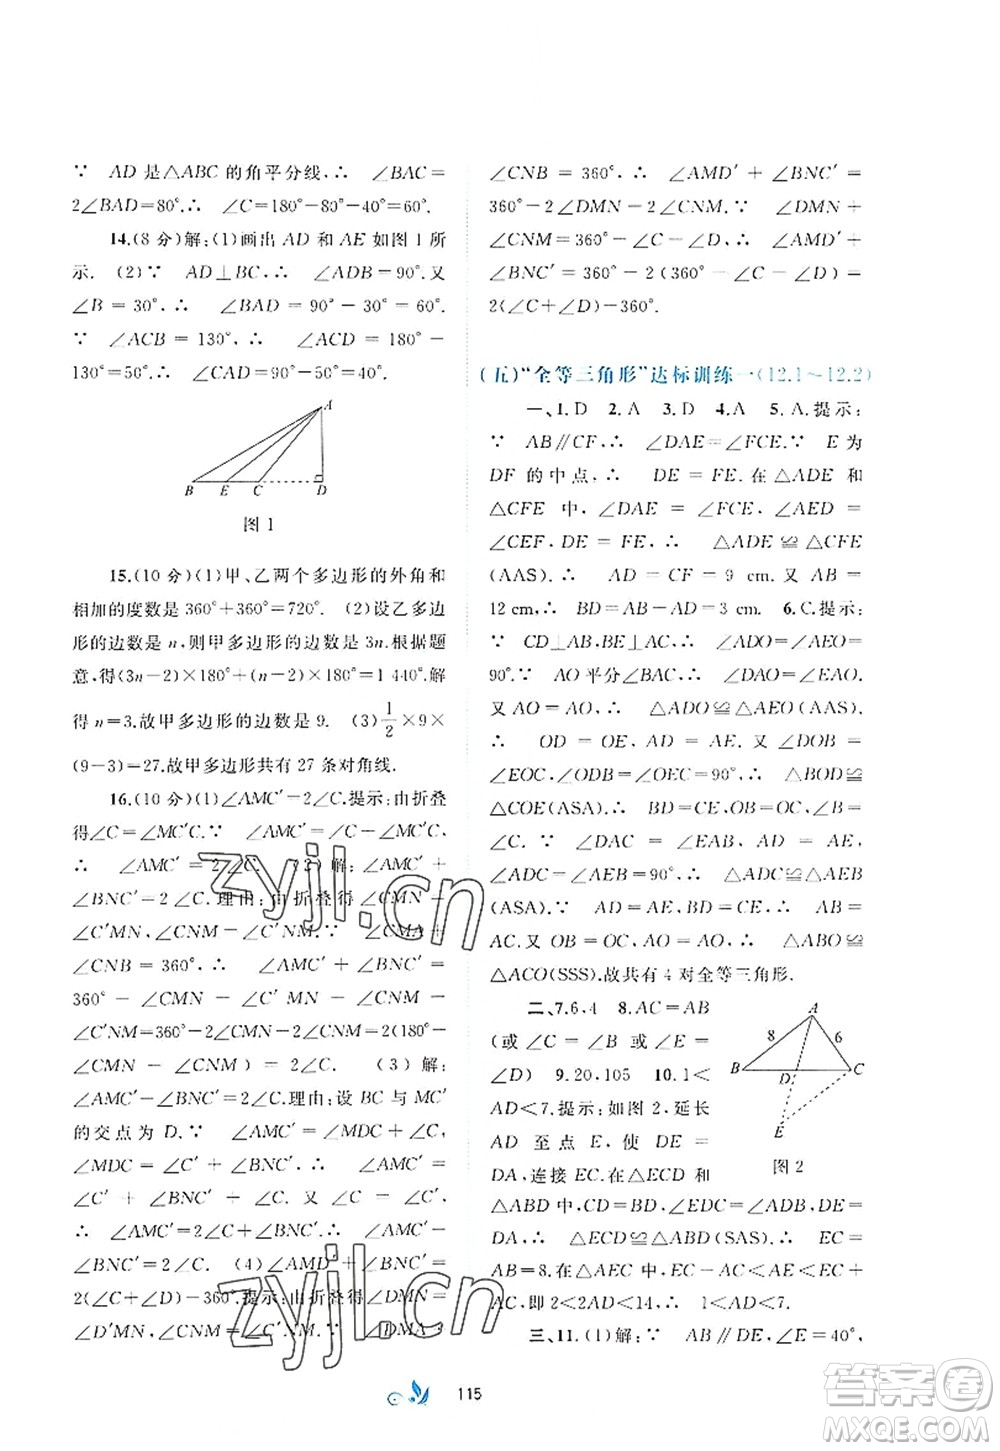 ∵ AD是△ABC的角平分线,∴ ∠BAC=
2∠BAD=80°.∴ ∠C=180°-80°-40°=60°.
14.(8分)解:(1)画出AD和AE如图1所
示. (2)∵ AD⊥BC,∴ ∠ADB=90°.又
∠B=30°,∴ ∠BAD=90°-30°=60°.
∵ ∠ACB=130°,∴ ∠ACD=180°-
130°=50°.∴ ∠CAD=90°-50°=40°.
A
B E C D
图1
15.(10分)(1)甲、乙两个多边形的外角和
相加的度数是360°+360°=720°. (2)设乙多边
形的边数是n,则甲多边形的边数是3n.根据题
意,得(3n-2)×180°+(n-2)×180°=1 440°.解
得n=3.故甲多边形的边数是9. (3)1/2×9×
(9-3)=27.故甲多边形共有27条对角线.
16.(10分)(1)∠AMC′=2∠C.提示:由折叠
得∠C=∠MC′C.∵ ∠AMC′=∠C+∠MC′C,
∴ ∠AMC′=2∠C. (2)解:∠AMC′+
∠BNC′=2∠C.理由:由折叠得∠CMN=
∠C′MN,∠CNM=∠C′NM.∵ ∠CMA=
∠CNB=360°,∴ ∠AMC′+∠BNC′=
360°-∠CMN-∠C′MN+360°-∠CNM-
∠C′NM=360°-2∠CMN-2∠CNM=2(180°-
∠CMN-∠CNM)=2∠C. (3)解:
∠AMC′=2∠C+∠BNC′.理由:设BC与MC′
的交点为D.∵ ∠AMC′=∠MDC+∠C,
∠MDC=∠C′+∠BNC′,∴ ∠AMC′=
∠C′+∠BNC′+∠C.又∠C′=∠C,
∴ ∠AMC′=2∠C+∠BNC′.∴ ∠AMC′-
∠BNC′=2∠C. (4)∠AMD′+∠BNC′=
2(∠C+∠D)-360°.提示:由折叠得∠DMN=
∠D′MN,∠CNM=∠C′NM.∵ ∠DMA=
∠CNB=360°.∴ ∠AMD′+∠BNC′=
360°-2∠DMN-2∠CNM.∵ ∠DMN+
∠CNM=360°-∠C-∠D,∴ ∠AMD′+
∠BNC′=360°-2(360°-∠C-∠D)=
2(∠C+∠D)-360°.
(五)“全等三角形”达标训练一(12.1～12.2)
一、1.D 2.A 3.D 4.A 5.A.提示:
∵ AB∥CF,∴ ∠DAE=∠FCE.∵ E为
DF的中点,∴ DE=FE.在△ADE和
△CFE中,∠DAE=∠FCE,∠AED=
∠CEF,DE=FE,∴ △ADE≌△CFE
(AAS).∴ AD=CF=9 cm.又AB=
12 cm,∴ BD=AB-AD=3 cm. 6.C.提示:
∵ CD⊥AB,BE⊥AC,∴ ∠ADO=∠AEO=
90°.∵ AO平分∠BAC,∴ ∠DAO=∠EAO.
又AO=AO,∴ △ADO≌△AEO(AAS).
∴ OD=OE,AD=AE.又∠DOB=
∠EOC,∠ODB=∠OEC=90°,∴ △BOD≌
△COE(ASA).∴ BD=CE,OB=OC,∠B=
∠C.∵ ∠DAC=∠EAB,AD=AE,
∠ADC=∠AEB=90°,∴ △ADC≌△AEB
(ASA).∵ AD=AE,BD=CE,∴ AB=
AC.又OB=OC,AO=AO,∴ △ABO≌
△ACO(SSS).故共有4对全等三角形.
二、7.6,4 8.AC=AB
(或∠C=∠B或∠E=
∠D) 9.20,105 10.1<
AD<7.提示:如图2,延长
AD至点E,使DE=
DA,连接EC.在△ECD和
A
8 6
B D C
E
图2
△ABD中,CD=BD,∠EDC=∠ADB,DE=
DA,∴ △ECD≌△ABD(SAS).∴ EC=
AB=8.在△AEC中,EC-AC<AE<EC+
AC,即2<2AD<14,∴ 1<AD<7.
三、11.(1)解:∵ AB∥DE,∠E=40°,
zyjl.cn
zyjl.cn
115
答案圈
MXQE.COM